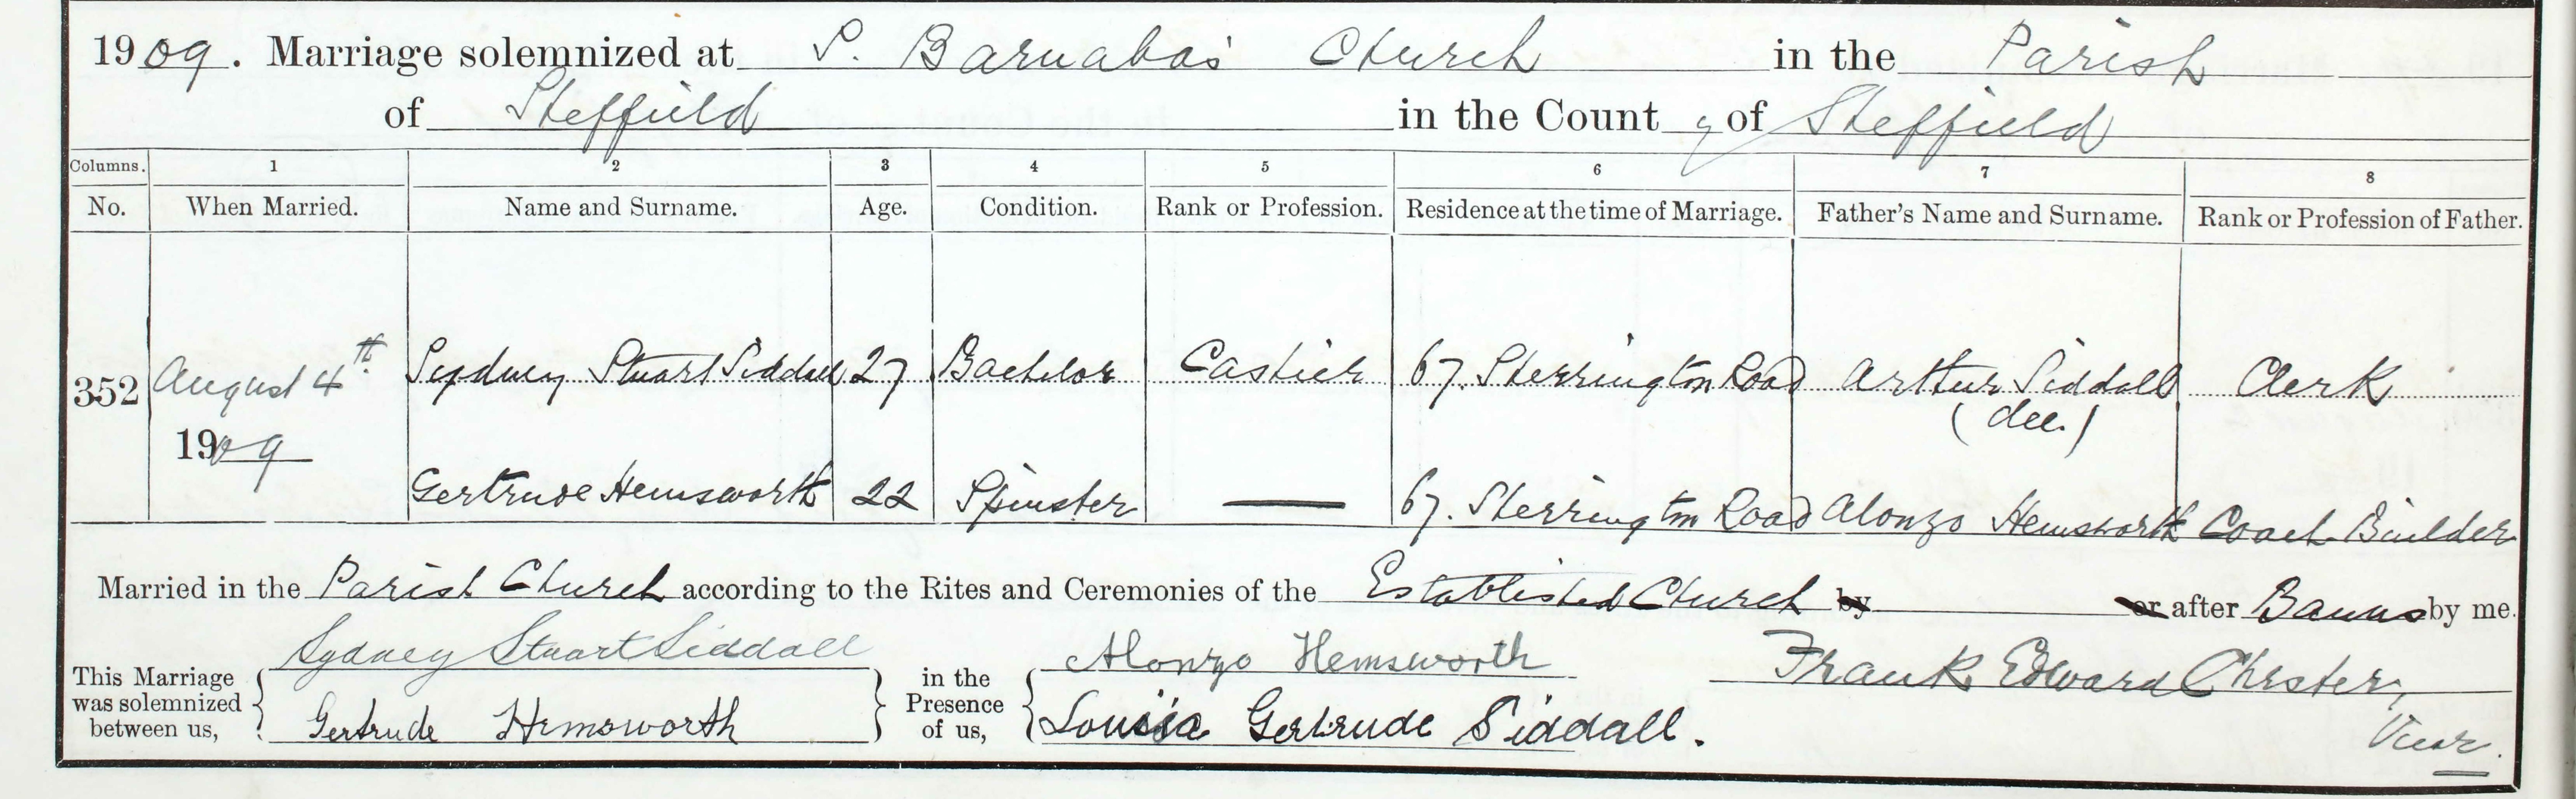 1909. Marriage solemnized at S. Barnabas' Church in the Parish
of Sheffield in the County of Sheffield
Columns. 1 2 3 4 5 6 7 8
No. When Married. Name and Surname. Age. Condition. Rank or Profession. Residence at the time of Marriage. Father's Name and Surname. Rank or Profession of Father.
352 August 4th Sydney Stuart Siddall 27 Bachelor Cashier 67. Sherrington Road Arthur Siddall Clerk
(dec.)
1909
Gertrude Hemsworth 22 Spinster — 67. Sherrington Road Alonzo Hemsworth Coach Builder
Married in the Parish Church according to the Rites and Ceremonies of the Established Church by or after Banns by me.
This Marriage was solemnized between us, { Sydney Stuart Siddall } in the Presence of us, { Alonzo Hemsworth Frank Edward Chester,
Gertrude Hemsworth Louisa Gertrude Siddall. Vicar.